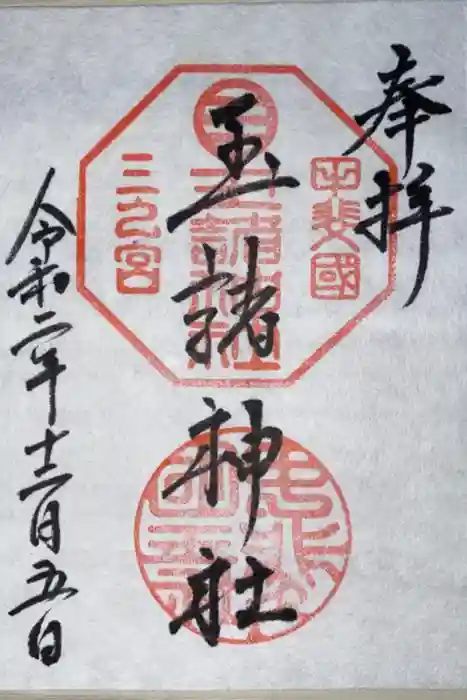 奉拝
甲斐國
玉諸神社
玉諸神社
三乃宮
令和二年十二月五日